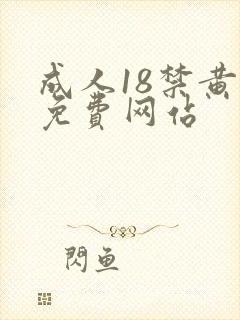 成人18禁黄
免費网佔
閃鱼